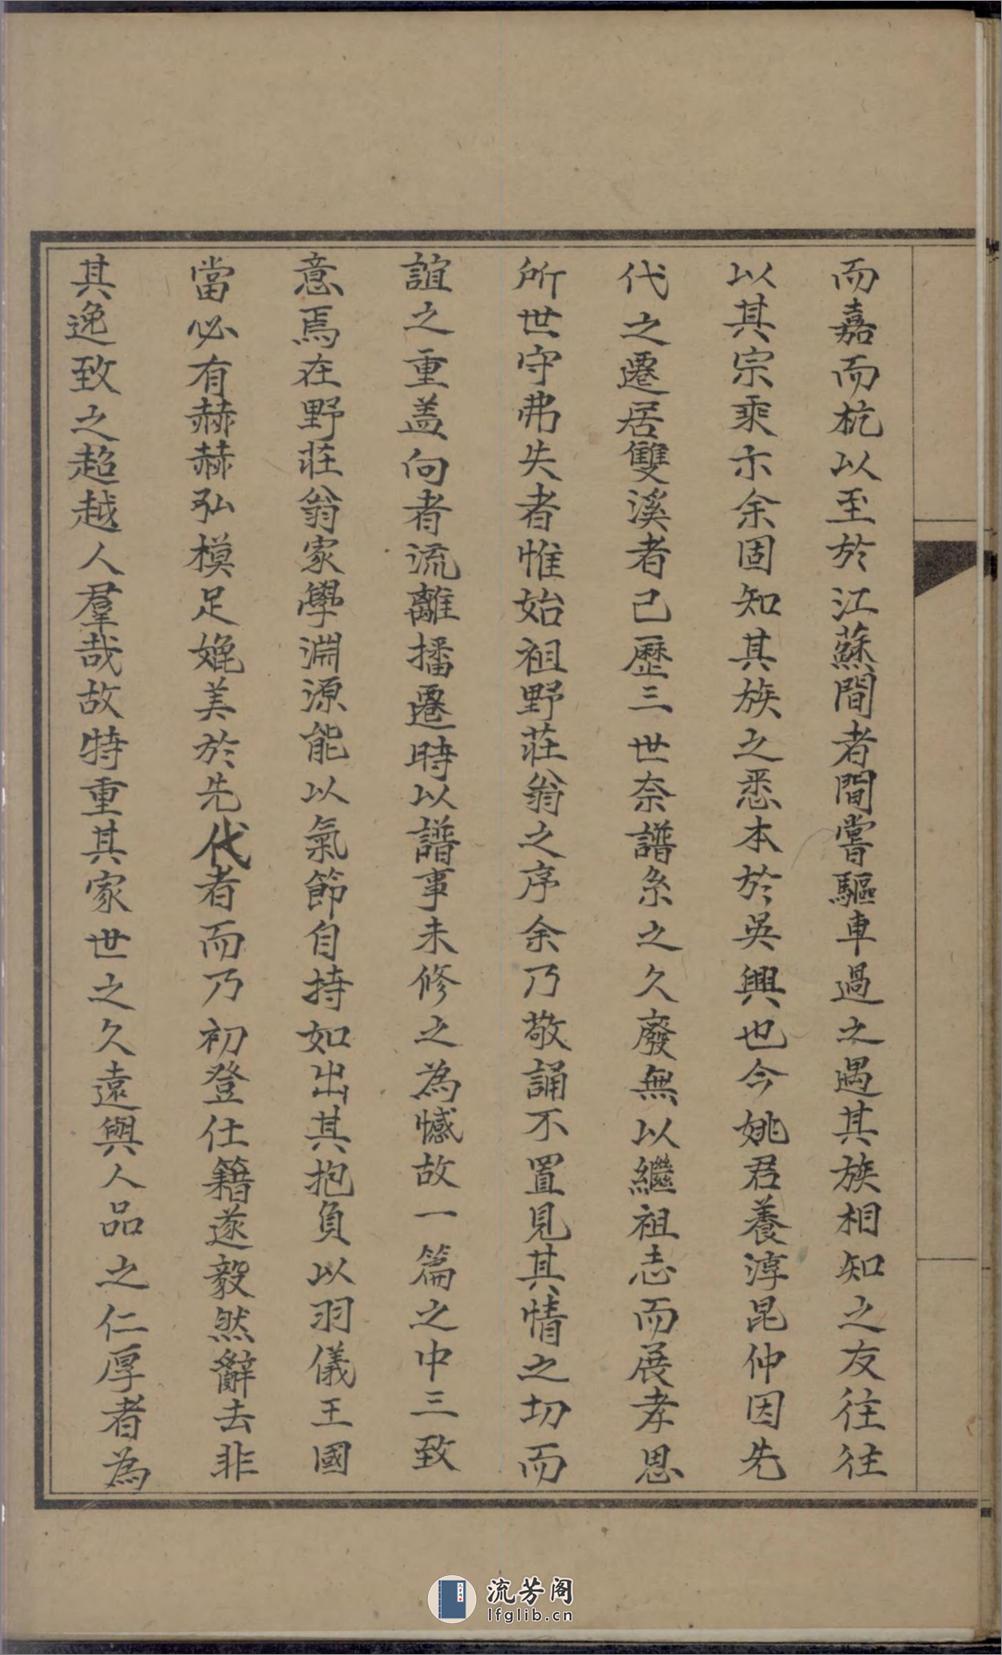 而嘉而杭以至於江蘇間者間嘗驅車過之遇其族相知之友往往
以其宗乘示余固知其族之悉本於吳興也今姚君養淳昆仲因先
代之遷居雙溪者已歷三世奈譜系之久廢無以繼祖志而展孝思
所世守弗失者惟始祖野莊翁之序余乃敬誦不置見其情之切而
誼之重盖向者流離播遷時以譜事未修之為憾故一篇之中三致
意焉在野莊翁家學淵源能以氣節自持如出其抱負以羽儀王國
當必有赫赫弘模足媲美於先代者而乃初登仕籍遂毅然辭去非
其逸致之超越人羣哉故特重其家世之久遠與人品之仁厚者為
流芳阁
lfglib.cn